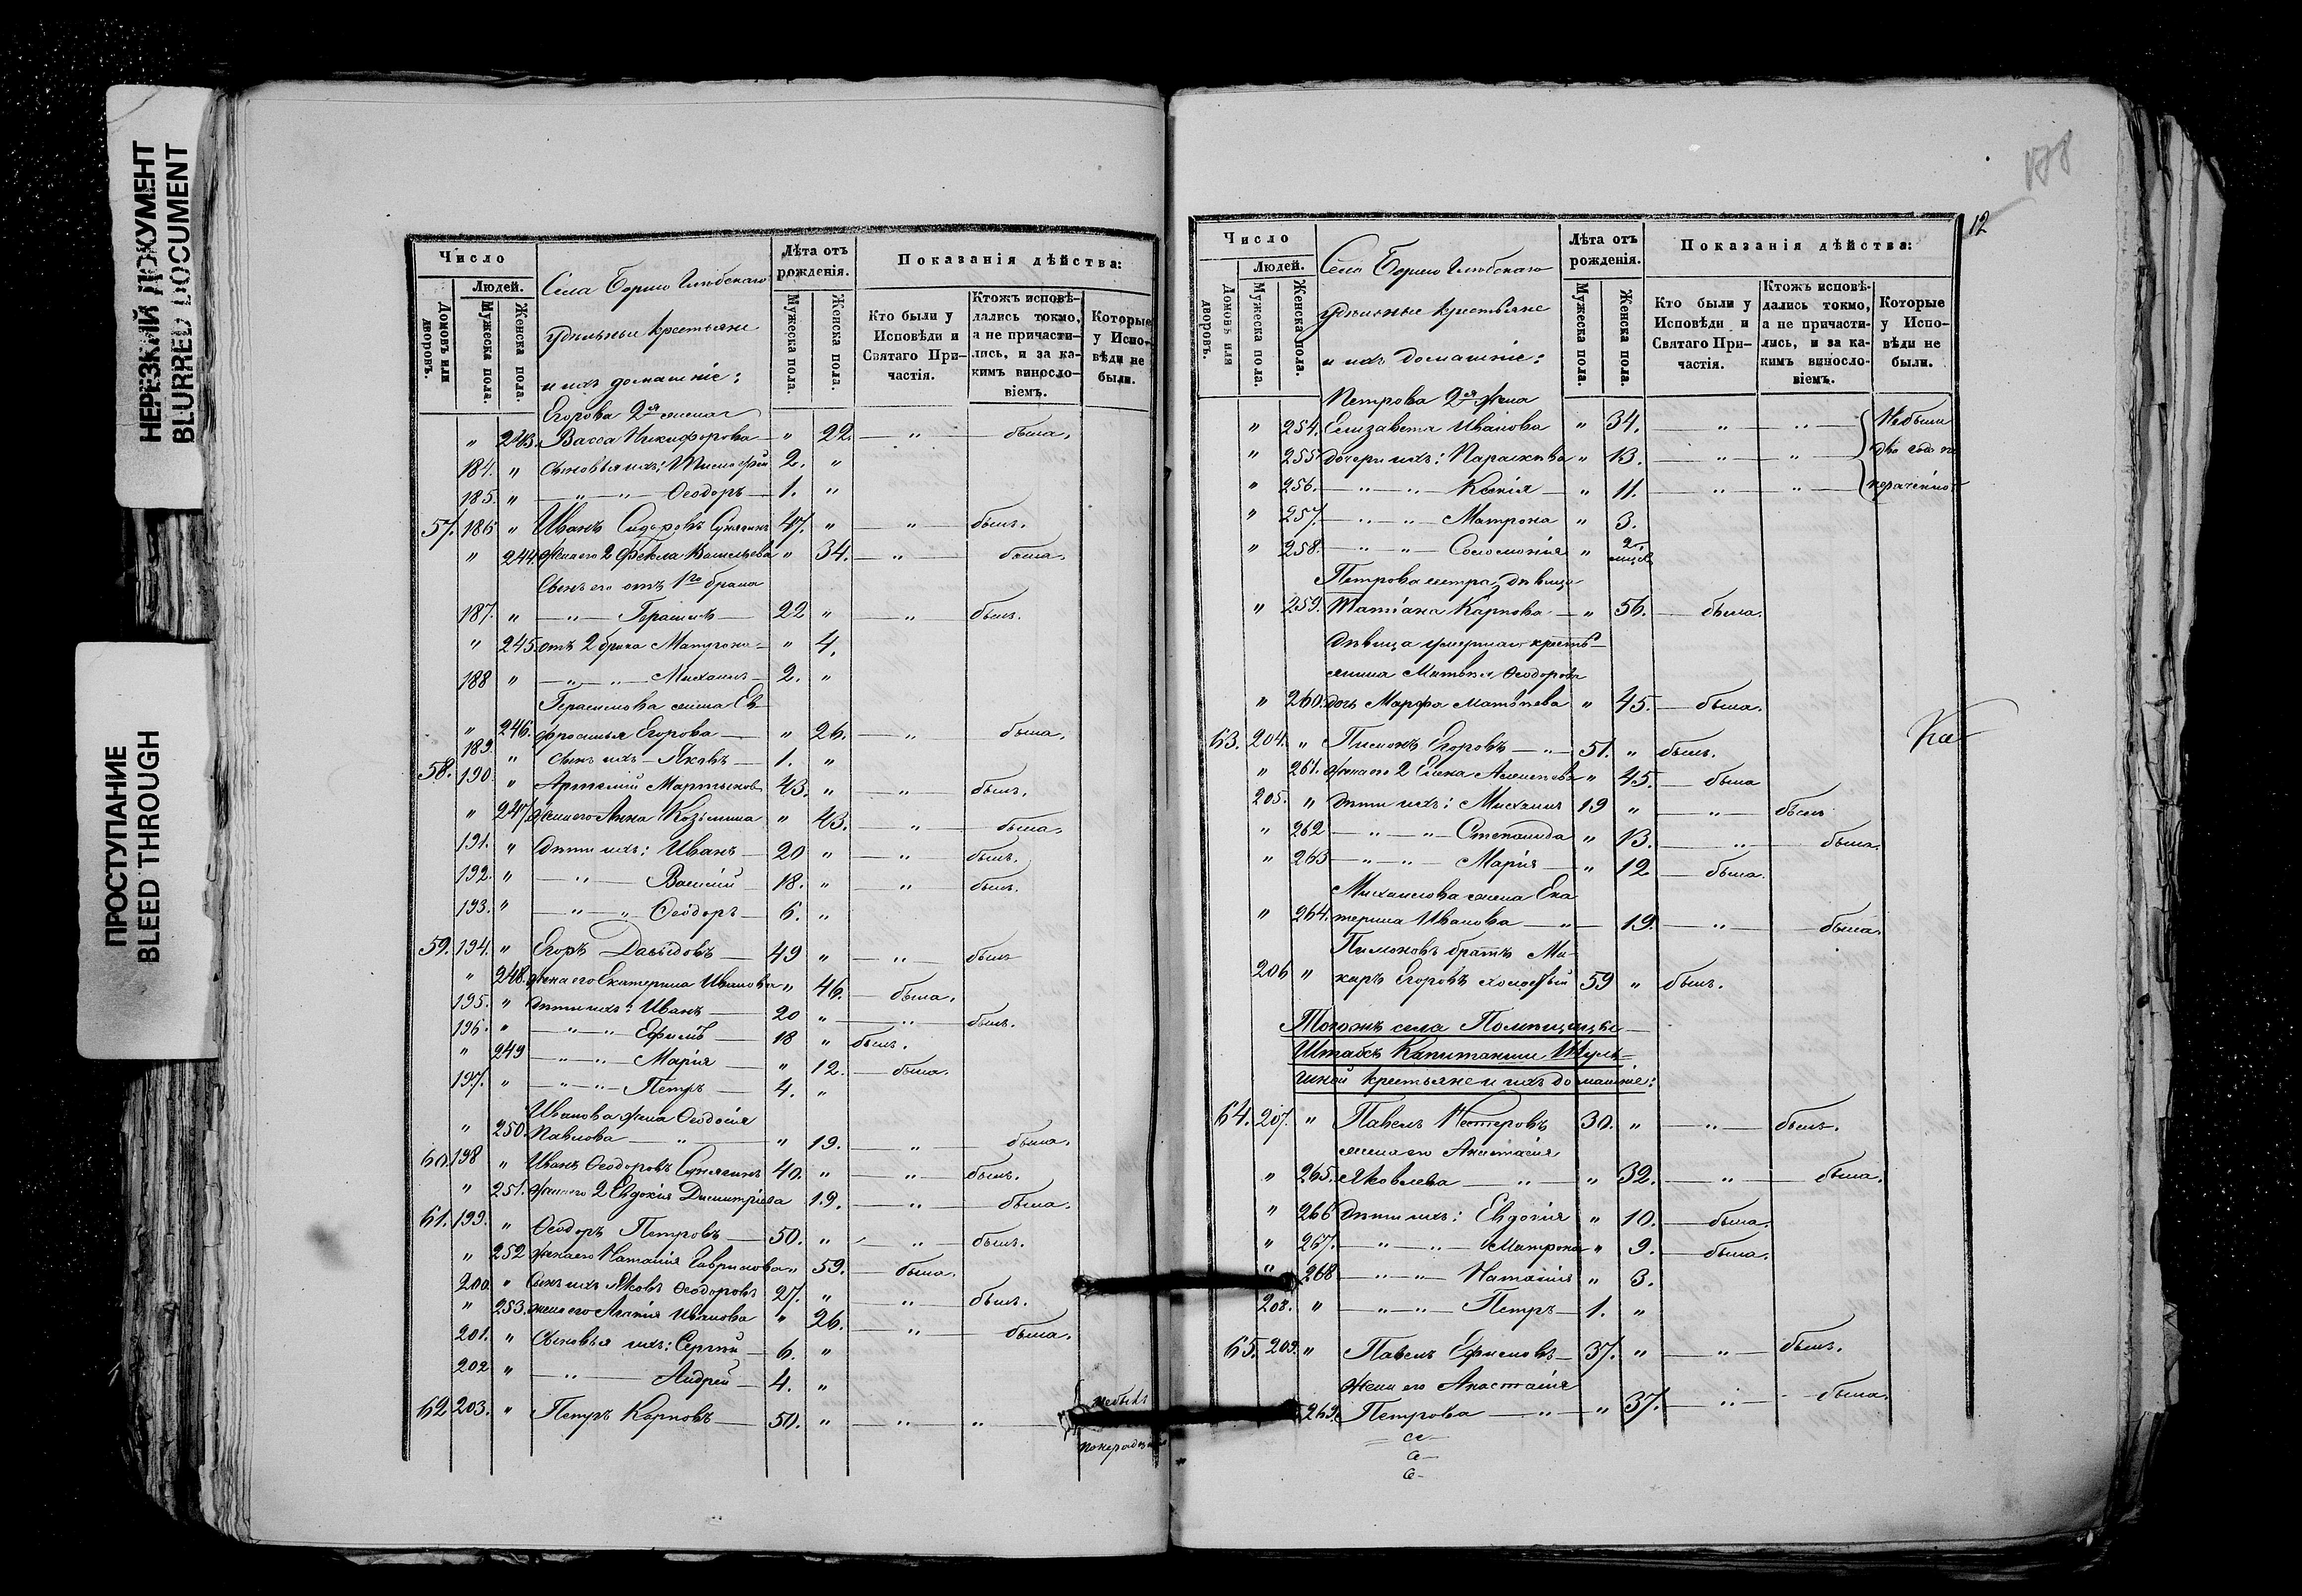 НЕРЕЗКИЙ ДОКУМЕНТ
BLURRED DOCUMENT
ПРОСТУПАНИЕ
BLEED THROUGH
Число
Людей.
Домовъ или дворовъ.
Мужеска пола.
Женска пола.
Села Борисо Глѣбскаго
удѣльные крестьяне
и ихъ домашніе:
Лѣта отъ рожденія.
Мужеска пола.
Женска пола.
Показанія дѣйства:
Кто были у Исповѣди и Святаго При-частія.
Ктожъ исповѣ-дались токмо, а не причасти-лись, и за ка-кимъ винosло-віемъ.
Которые у Испо-вѣди не были.
Егорова 2я жена
" 243. Васса Никифорова — " 22. — " — была.
184. " Сыновья ихъ: 2. "
185. " — " — " — Ѳеодоръ — 1. "
57. 186 " Иванъ Сидоровъ 47. " " былъ.
" 244. жена его 2 Ѳекла Васильева " 34. — " — была.
Сынъ его отъ 1го брака
187. " — " — Герасимъ — 22 " — " — былъ.
" 245. отъ 2 брака Матрона — " 4.
188 " — " — " — Михаилъ — 2. "
Герасимова жена Ев-
" 246. фросинья Егорова — " 26. — " — была.
189. " сынъ ихъ — Яковъ — 1. "
58. 190. " Артемій Мартыновъ 43. " — " — былъ.
" 247. жена его Анна Козьмина " 43. — " — была.
191. " Дѣти ихъ: Иванъ — 20 " — " — былъ.
192. " — " — Василій — 18. " — " — былъ.
193. " — " — " Ѳеодоръ — 6. "
59. 194. " Егоръ Давыдовъ — 49 " — " — былъ
" 248. жена его Екатерина Иванова " 46. — была.
195. " Дѣти ихъ: Иванъ — 20 " — " — былъ.
196. " — " — " Ефимъ — 18 " былъ.
" 249 — " — " Марія — " 12. — была.
197. " — " — " — Петръ — 4. "
Иванова жена Ѳеодосія
" 250. Павлова — " — " 19. — " — была.
60. 198 " Иванъ Ѳеодоровъ 40. " — " — былъ.
" 251. жена его 2 Евдокія Димитріева 19. — " — была.
61. 199. " Ѳеодоръ Петровъ — 50. " — " — былъ.
" 252 жена его Наталія Гаврилова " 59. — была.
200. " Сынъ ихъ Яковъ Ѳеодоровъ 27. " — " — былъ.
" 253. жена его Агафія Иванова " 26. — " — была.
201. " Сыновья ихъ: Сергій — 6. "
202 " — " — Андрей — 4. "
62 203. " Петръ Карповъ — 50. " — " — "
12
Число
Людей.
Домовъ или дворовъ.
Мужеска пола.
Женска пола.
Села Борисо Глѣбскаго
удѣльные крестьяне
и ихъ домашніе:
Лѣта отъ рожденія.
Мужеска пола.
Женска пола.
Показанія дѣйства:
Кто были у Исповѣди и Святаго При-частія.
Ктожъ исповѣ-дались токмо, а не причасти-лись, и за ка-кимъ винosло-віемъ.
Которые у Испо-вѣди не были.
Петрова 2я жена
" 254. Елизавета Иванова " 34. — " — " — Небыли
" 255 дочери ихъ: Параскева " 13. — " — " — два года по
" 256. — " — " — Ксенія — " 11. — " — "
" 257. — " — " — Матрона " 3.
" 258. — " — " — Соломонія " 2
Петрова сестра, дѣвица
" 259. Татіана Карпова — " 56. — была.
Дѣвица умершаго кресть-
янина Матвѣя Ѳеодорова
" 260. дочь Марфа Матвѣева " 45. — была.
63. 204. " Пимонъ Егоровъ — " 51. " былъ.
" 261. жена его 2 Елена " 45. — была
205. " дѣти ихъ: Михаилъ 19 " — " — былъ
" 262 — " — " Степанида " 13. — " — была.
" 263 — " — " — Марія — " 12 — была.
Михаилова жена Ека
" 264. терина Иванова — " — 19. — " — была.
Пимоновъ братъ Ма-
206 " каръ Егоровъ холостый 59 " былъ.
Ка
Тогожъ села Помѣщицы
Штабсъ Капитанши Шуль-
гиной крестьяне и ихъ домашніе:
64. 207. " Павелъ Нестеровъ 30. " — " — былъ.
жена его Анастасія
" 265. Яковлева — " — " 32. — " — была.
" 266 Дѣти ихъ: Евдокія " 10. — была.
" 267. — " — " — Матрона " 9. — была.
" 268 — " — " — Наталія " 3.
208. " — " — " — Петръ — 1. "
65. 209. " Павелъ Ефимовъ — 37. " — " — былъ.
жена его Анастасія
269. Петрова — " — " 37. — " — была.